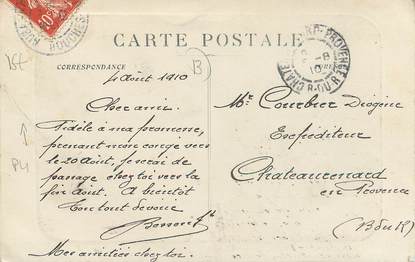 CARTE POSTALE
CORRESPONDANCE
4 Août 1910
Cher ami.
Fidèle à ma promesse,
prenant mon congé vers
le 20 Août, je serai de
passage chez toi vers la
fin Août. A bientôt
Ton tout dévoué
Mes amitiés chez toi.
Mr Courbier Diogène
Expéditeur
Chateaurenard
en Provence
(B du R)
B